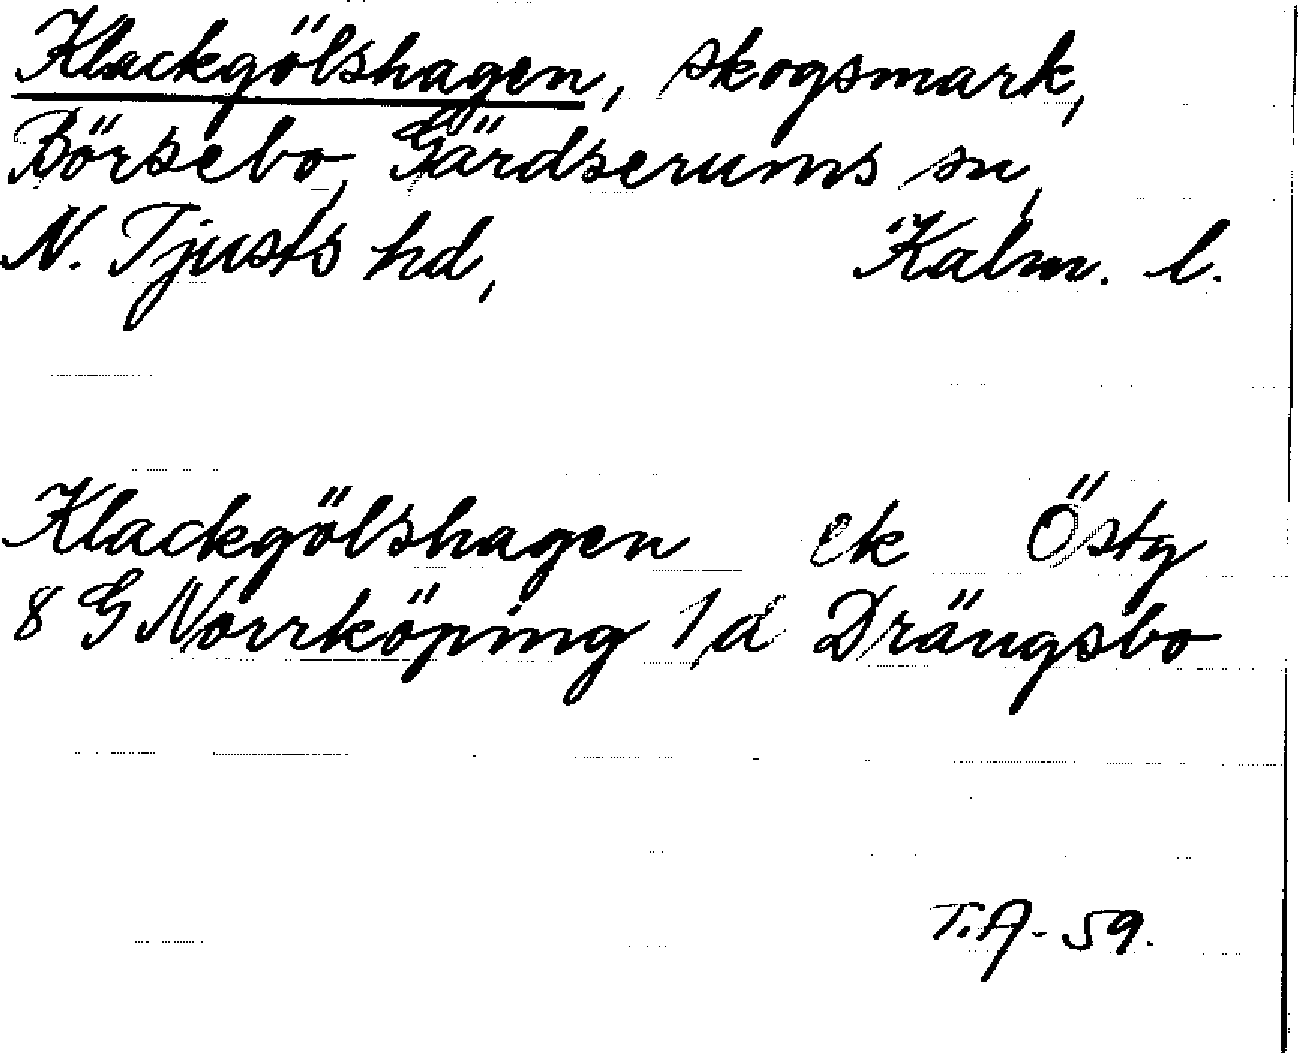 Klackgölshagen, skogsmark,
Börsebo, Gärdserums sn,
N. Tjusts hd, Kalm. l.
Klackgölshagen ek Östg
8 G Norrköping 1 d Drängsbo
T.A-59.